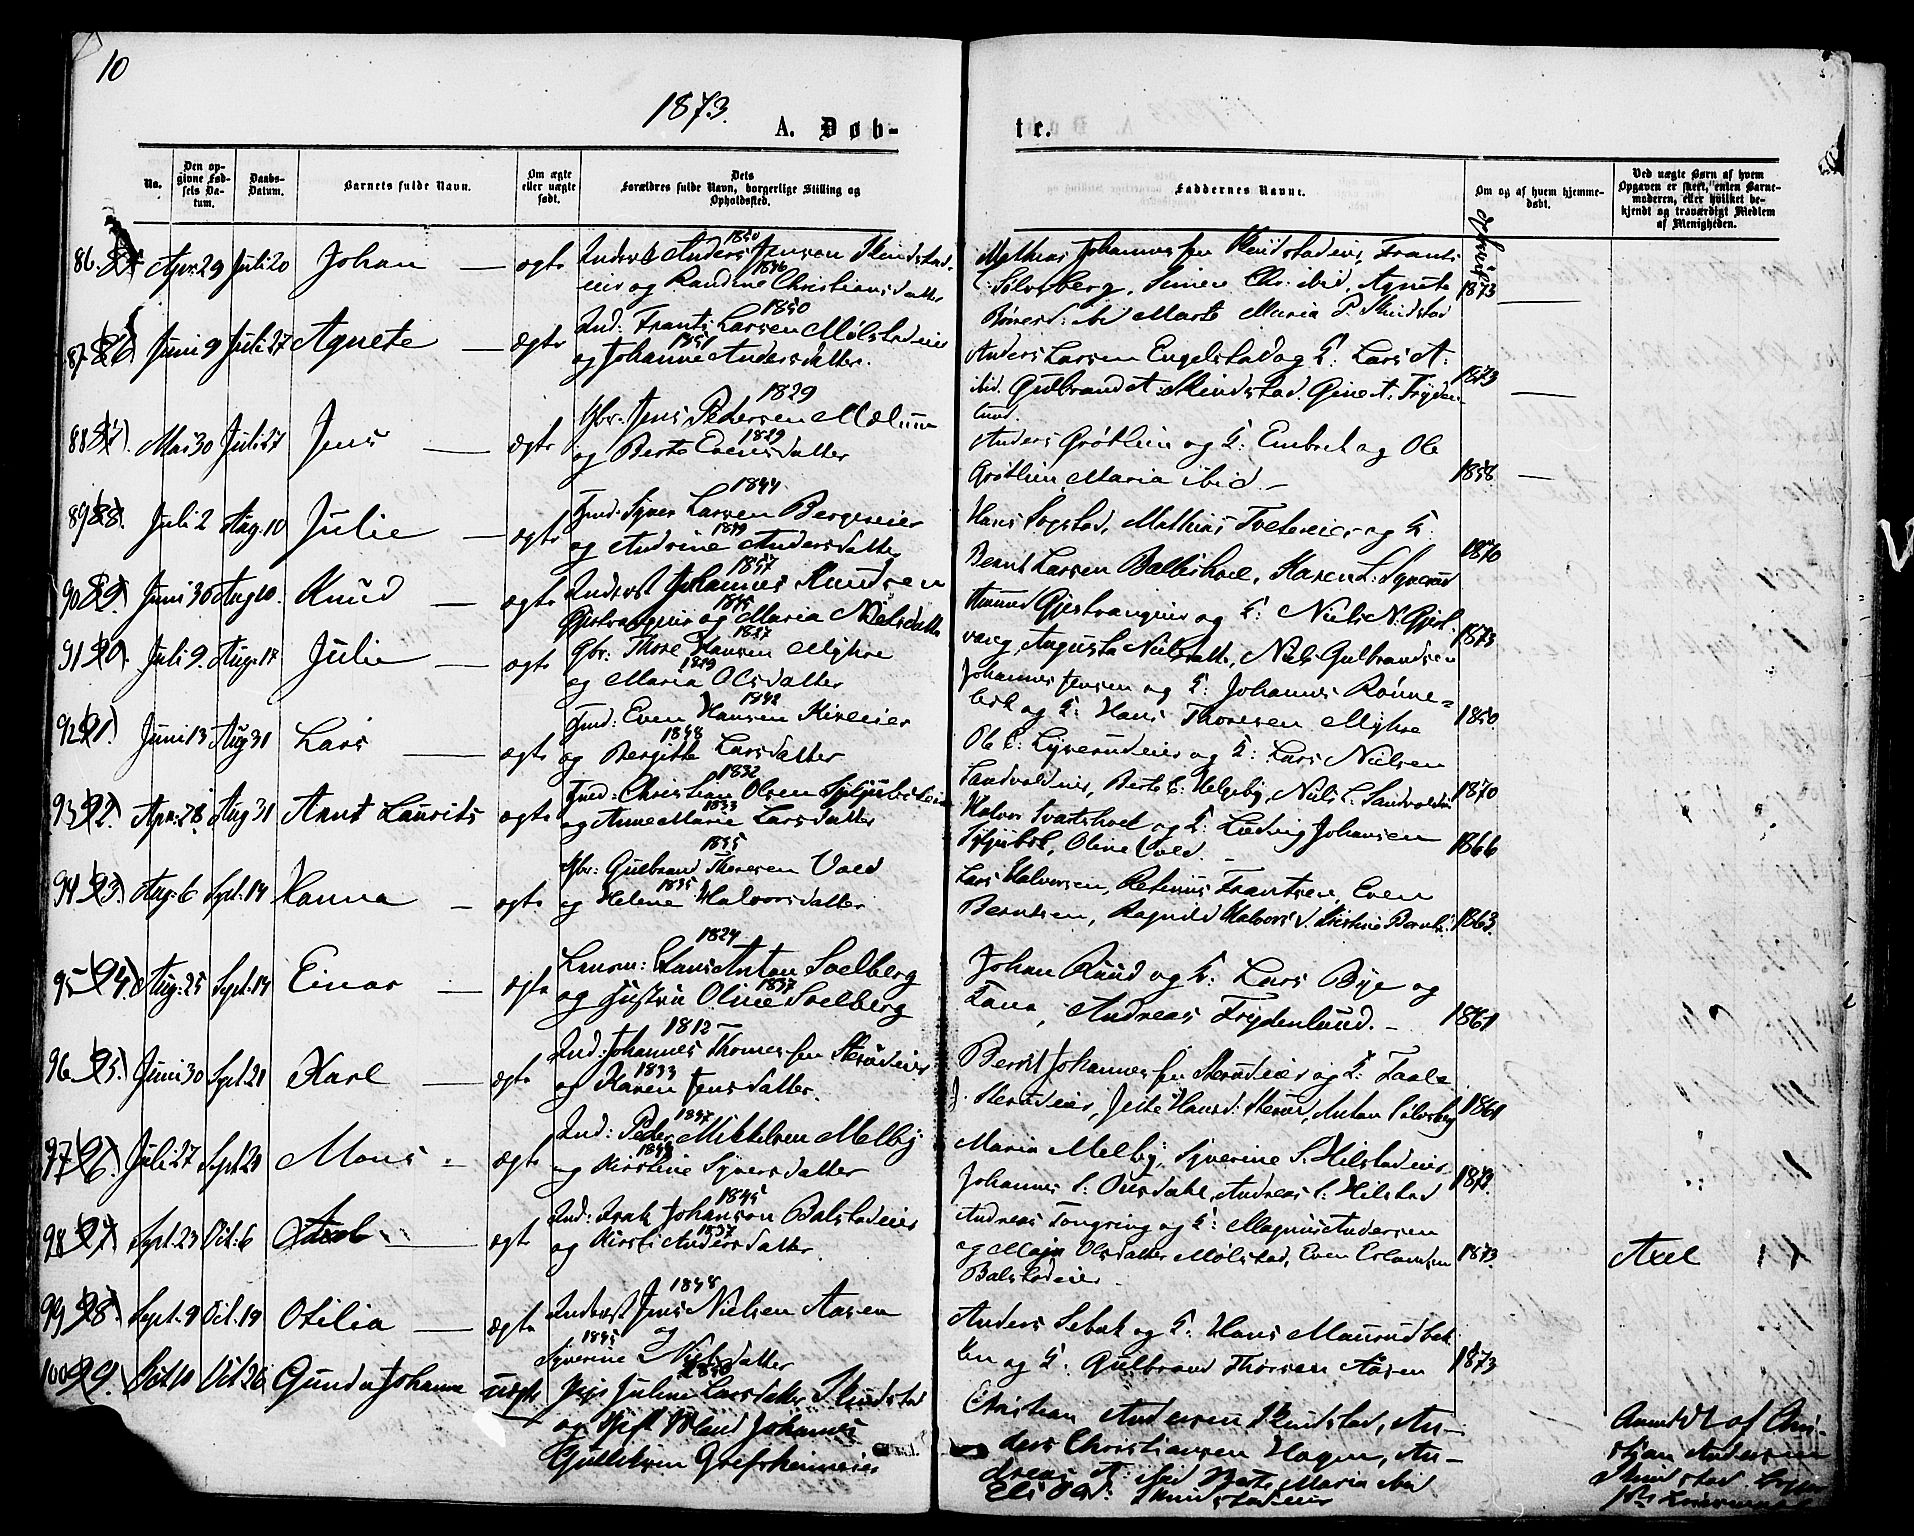 10
1873.
A. Døb-
te.
No.
Den op-
givne Fød-
sels Da-
tum.
Daabs-
Datum.
Barnets fulde Navn.
Om ægte
eller uægte
født.
Dets
Forældres fulde Navn, borgerlige Stilling og
Opholdssted.
Faddernes Navne.
Om og af hvem hjemme-
døbt.
Ved uægte Børn af hvem
Opgaven er skeet, enten Barne-
moderen, eller hvilket be-
kjendt og troværdigt Medlem
af Menigheden.
86. Apr. 29 Juli 20 Johan — ægte Inderst Anders Jensen Skindstad-
1850
eier og Randine Christiansdatter
1846
Mathias Johannessen Skindstadeier, Frants
Sølvsberg, Simen Chr. ibid, Agnete
ibid Marte Maria P. Skindstad
1873 —
87 86. Juni 9 Juli 27 Agnete — ægte Ind: Frants Larsen Mølstadeier
1850
og Johanne Andersdatter.
1851
Anders Larsen Engelstad og H: Lars A:
ibid. Gulbrand A: Skindstad. Gine A. Fryden-
lund.
1873 —
88 87. Mai 30 Juli 27 Jens — ægte Gbr: Jens Pedersen Mælum
1829
og Berte Evensdatter
1829
Anders Grøtlien og H: Embret og Ole
Grøtlien, Maria ibid. —
1858 —
89 88. Juli 2 Aug. 10 Julie — ægte Hmd: Syver Larsen Bergseeier
1844
og Andrine Andersdatter
1849
Hans Sogstad, Mathias Tvetereier og H:
Bernt Larsen Balleshoel, Karen L. Syverud
1870
90 89. Juni 30 Aug. 10. Knud — ægte Inderst Johannes Knudsen
1847
Gjestvangeier og Maria Nielsdatter
1845
Amund Gjestvangeier og H: Niels N. Gjest-
vang, Augusta Nielsdatter, Niels Gulbrandsen
1873
91 90. Juli 9. Aug. 17 Julie — ægte Gbr: Thore Hansen Myhre
1827
og Maria Olsdatter
1829
Johannes Jensen og H: Johannes Rønne-
bek og H: Hans Thoresen Myhre
1850.
92 91. Juni 13 Aug. 31 Lars — ægte Hmd: Even Hansen Kireeier
1842
og Bergitte Larsdatter
1848
Ole E: Syverudeier og H: Lars Nielsen
Sandvoldeier, Berte E: Helgeby, Niels L. Sandvoldeier
1870
93 92. Apr. 28 Aug. 31 Arnt Laurits ægte Hmd: Christian Olsen
1832
og Anne Marie Larsdatter
1833
Halvor Svartshoel og H: Ludvig Johansen
Oline Vold.
1866
94 93. Aug. 6 Sept. 14 Hanna — ægte Gbr: Gulbrand Thoresen Vold
1835
og Helene Halvorsdatter
1835
Lars Halvorsen, Petrinus Frantsen, Even
Berntsen, Ragnild Halvorsd. Kristine Bernts.
1863.
95 94. Aug. 25 Sept. 14 Einar — ægte Lensm: Hans Anton Solberg
1824
og Justine Oline Solberg
1837
Johan Ruud og H: Lars Bye og
Hana, Andreas Frydenlund. —
1861
96 95. Juni 30 Sept. 21 Karl — ægte Ind: Johannes Thomessen Sterudeier
1812
og Karen Jensdatter.
1833
Bernt Johannessen Sterudeier og H: Taale
J. Sterudeier, Jette Hansd: Sterud, Anton Sølvsberg
1861
97 96. Juli 27 Sept. 23 Mons — ægte Ind: Peder Mikkelsen Melby.
1847
og Kirstine Syversdatter
1848
Maria Melby, Syverine S. Hilstadeier
Johannes S: Ousdahl, Andreas S: Hilstad
1872.
98 97. Sept. 23 Oct. 6 Axel — ægte Ind: Isak Johanson Balstadeier
1845
og Kirsti Andersdatter.
1837
Andreas Tongring og H: Magnus Andersen
og Maja Olsdatter Mølstad, Even Erlandsen
Balstadeier.
1873.
Axel
99 98. Sept. 9 Oct. 19 Otilia — ægte Inderst Jens Nielsen Aasen
1848
Syverine Nielsdatter
1845
Anders Sebak og H: Hans Maurudbak-
ken og H: Gulbrand Thorsen Aasen
1873
100 99. Oct. 10 Oct. 26 Gunda Johanne uægte Pige Juline Larsdatter Skindstad
1850
og Gift Mand Johannes
Gulliksen Grefsheimeier
Christian Andersen Skindstad, An-
ders Christiansen Hagen, An-
dreas A: ibid Berte Maria ibid
Eli Skindstadeier
Anmeldt af Chri-
stian Andersen
Skindstad